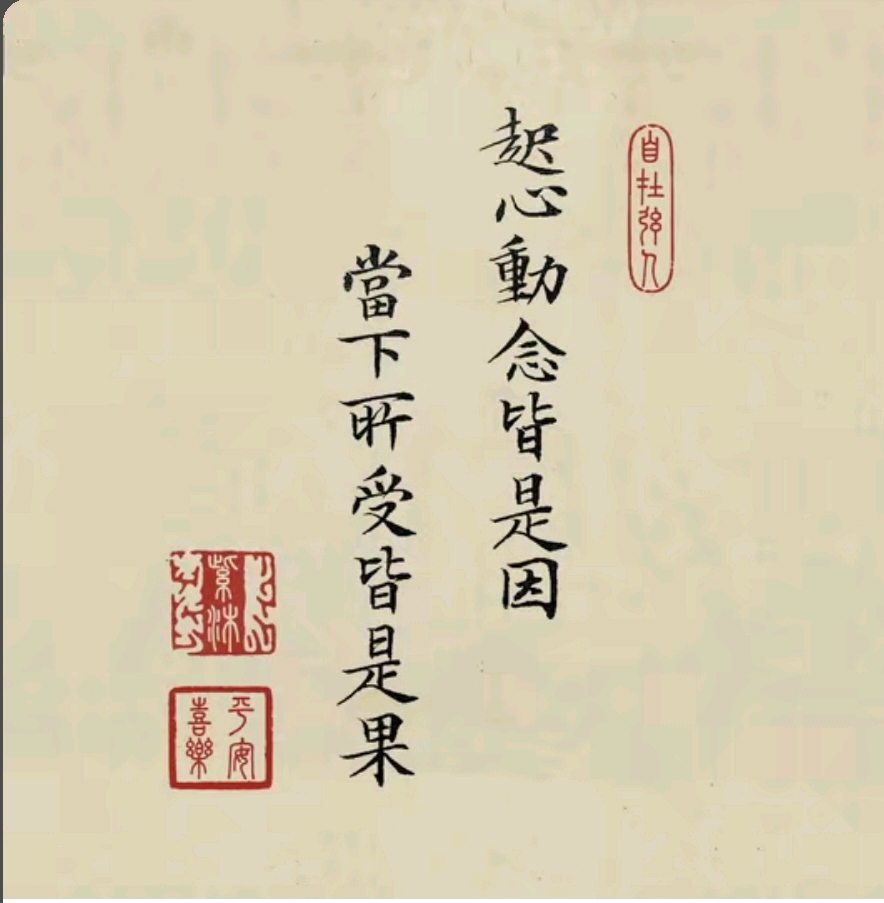 起心動念皆是因
當下所受皆是果
平安
喜樂